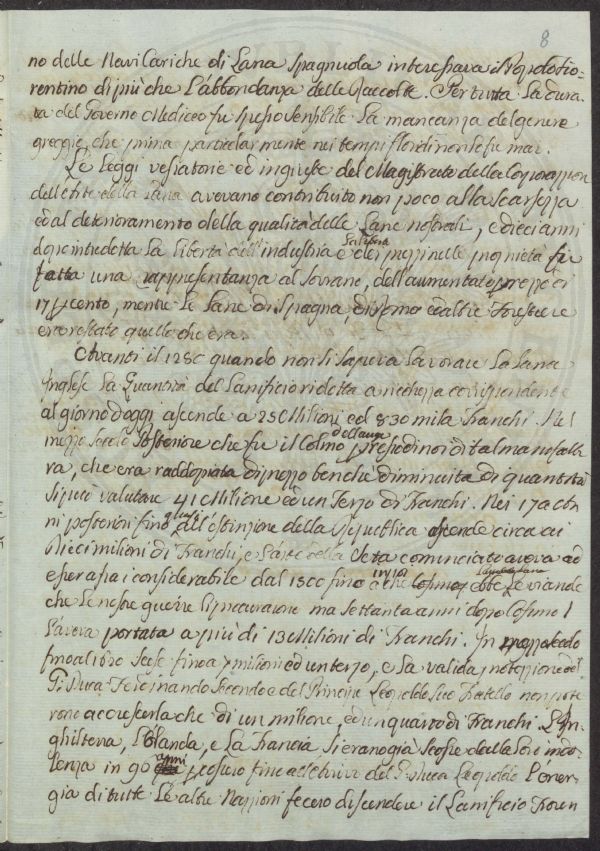 8
no delle Navi Cariche di Lana Spagnuola interessava il Popolo Fio=
rentino di più che L'abbondanza delle Raccolte. Per tutta La dura=
ta del Governo Mediceo fu spesso sensibile La mancanza del genere
greggio, che prima particolarmente nei tempi floridi non se fu mai.
Le Leggi vessatorie ed ingiuste del Magistrato della Corporazion
dell'Arte della Lana avevano contribuito non poco alla scarsezza
ed al deterioramento della qualità delle Lane nostrali, e dieci anni
dopo introdotta La libertà dell'industria e dei prezzi nelle proprietà fu
fatta una rappresentanza al Sovrano, dell'aumentato prezzo di
17 p cento, mentre Le Lane di Spagna, di Roma ed altre Forestiere
era restato quello che era.
Avanti il 1280 quando non si sapeva Lavorare La Lana
Inglese La Quantità del Lanificio ridotta a ricchezza corrispondente
al giorno d'oggi ascende a 25 Milioni ed 830 mila Franchi. Nel
mezzo secolo Posteriore che fu il Colmo dell'auge presso di noi di tal manofattu
ra, che era raddoppiata di prezzo benché diminuita di quantità
si può valutare 41 Milione ed un Terzo di Franchi. Nei 170 an
ni posteriori fino all'estinzione della Repubblica ascende circa ai
Dieci milioni di Franchi, e L'Arte della Seta cominciato aveva ad
essere assai considerabile dal 1300 fino a che Cosimo ebbe Le vicende
che Le nostre guerre Li procurarono ma settanta anni dopo Cosimo I
L'aveva portata a più di 13 Milioni di Franchi. In mezzo secolo
fino al 1600 scese fino a 7 milioni ed un terzo, e La valida protezione del
G. Duca Ferdinando Secondo e del Principe Leopoldo suo Fratello non pote
rono accrescerla che di un milione, ed un quarto di Franchi. L'In=
ghilterra, L'Olanda, e La Francia si erano già scosse dalla Loro indo=
lenza in 90 anni p.o scorso fino all'Arrivo del G. Duca Leopoldo L'ener=
gia di tutte Le altre Nazioni fecero discendere il Lanificio Fioren